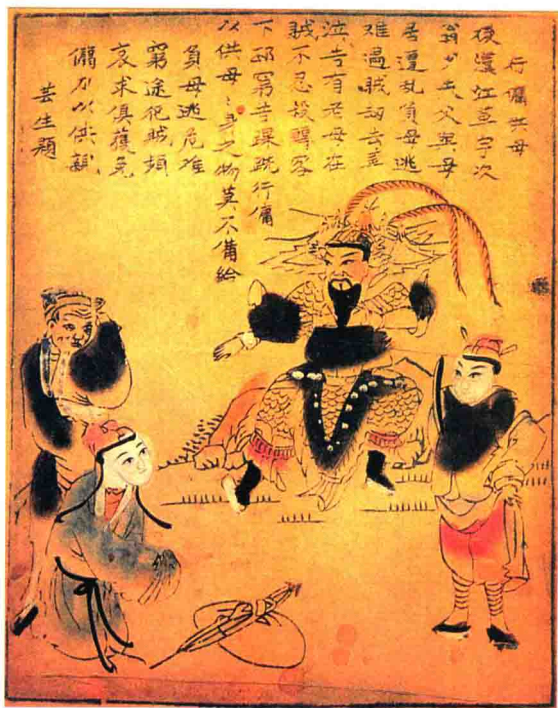 行傭供母
後漢江革字次
翁少失父與母
居遭亂負母逃
難遇賊劫去革
泣告有老母在
賊不忍殺轉客
下邳窮苦裸跣行傭
以供母々身之物莫不備給
負母逃危難
窮途犯賊頻
哀求俱獲免
傭力以供親
芸生題